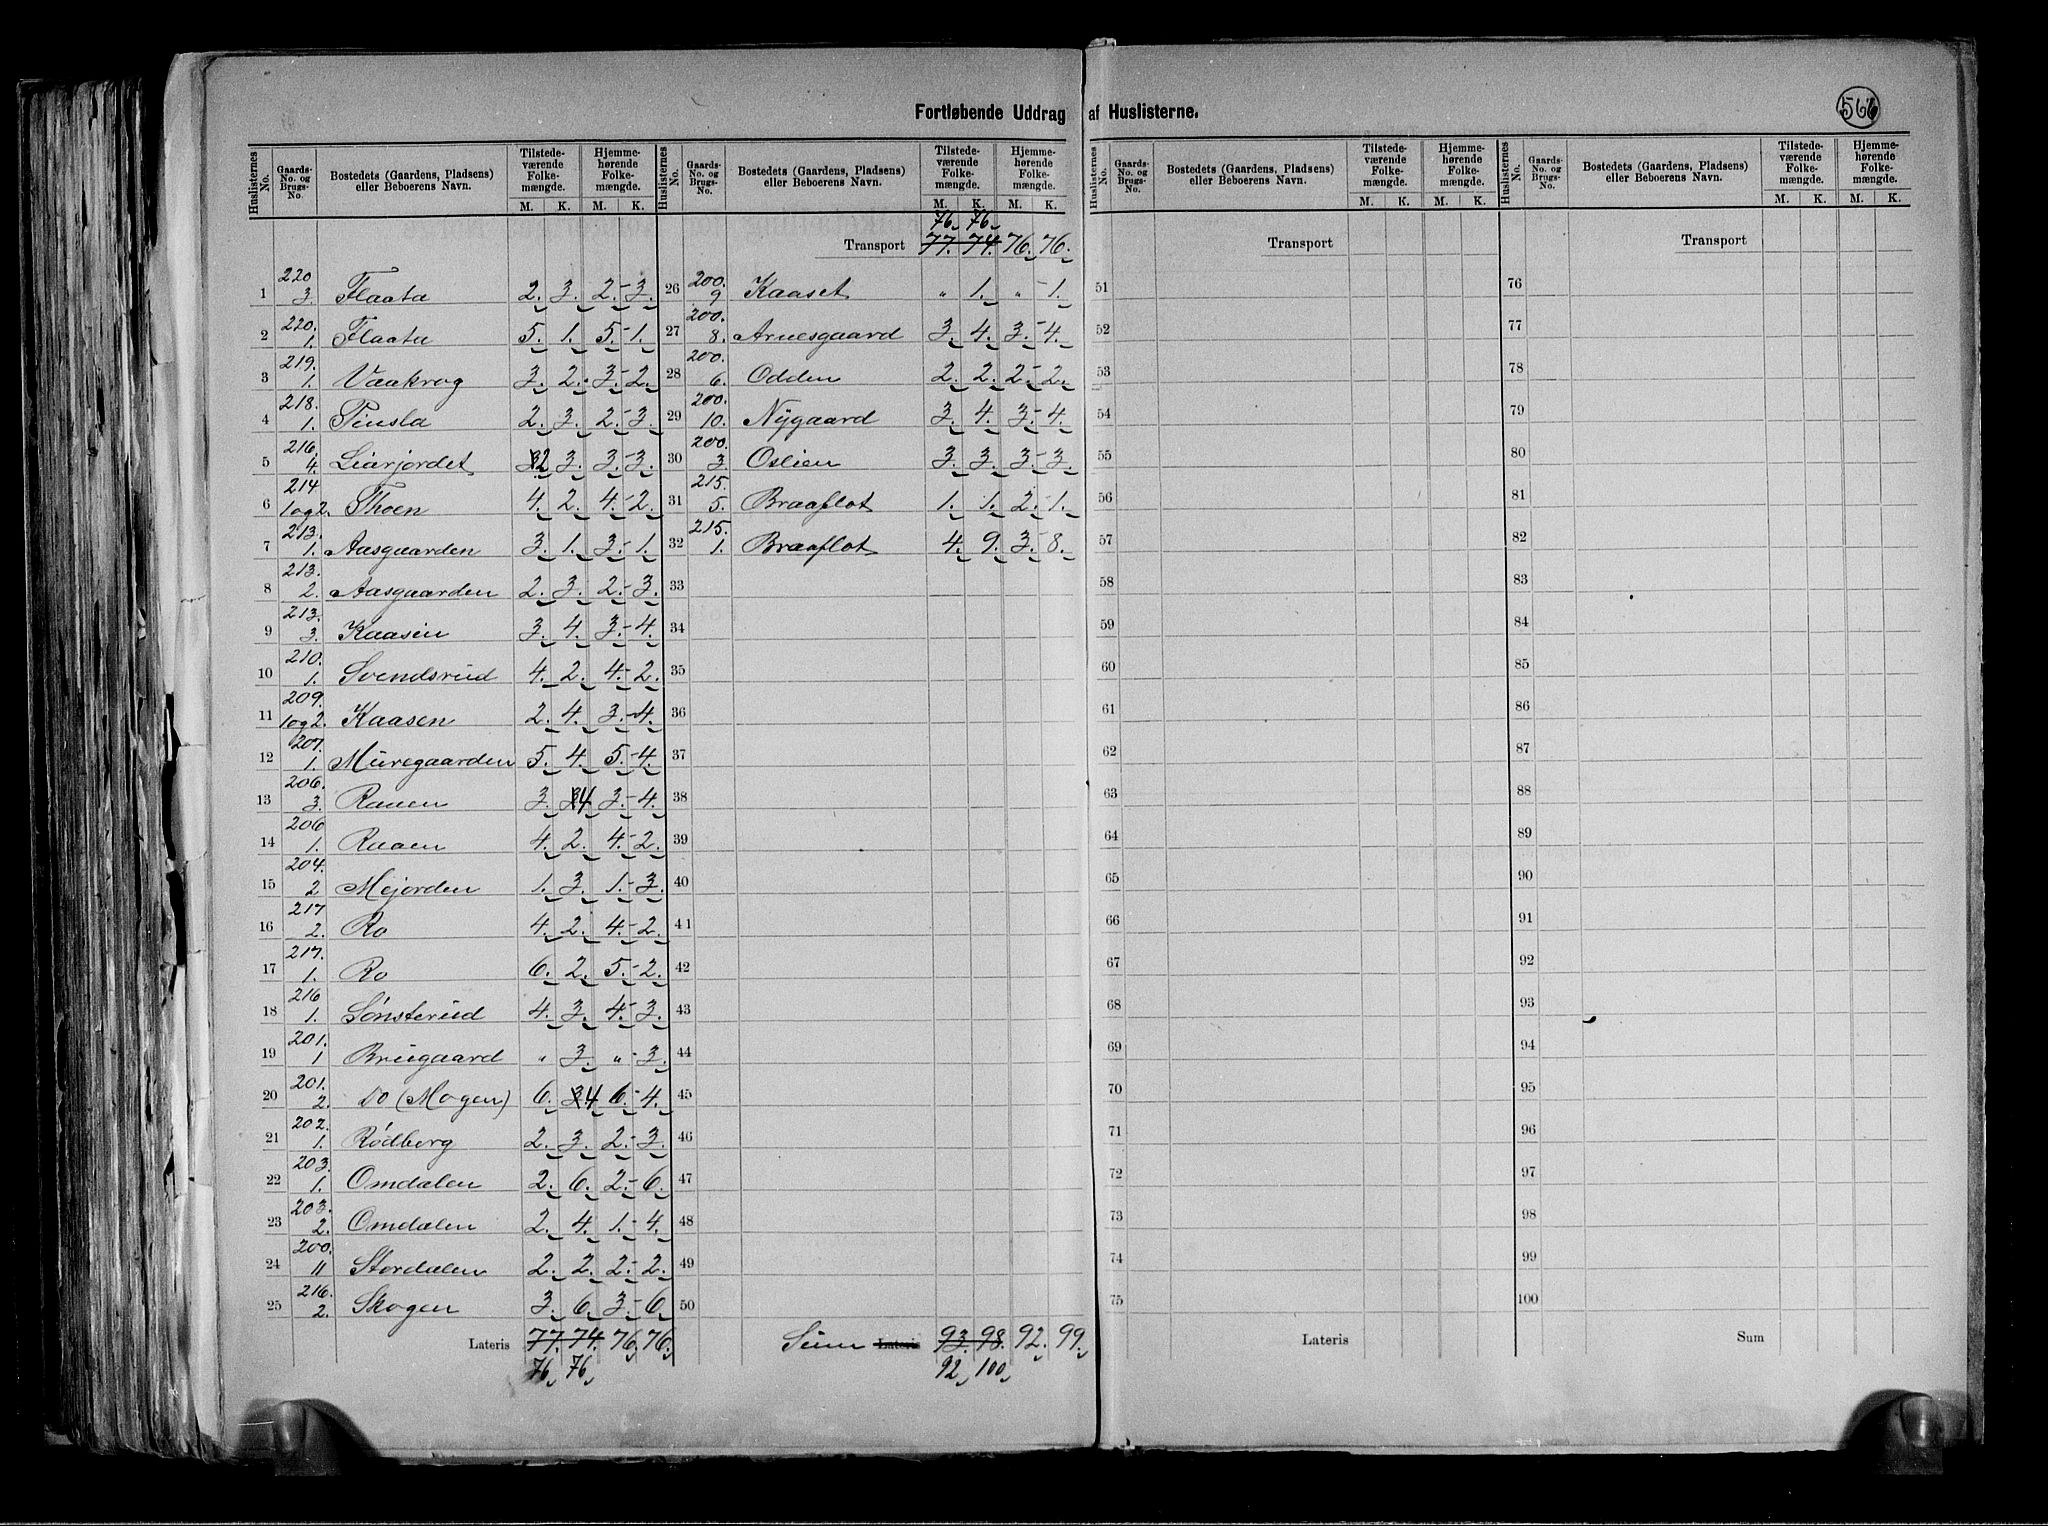 Fortløbende Uddrag af Huslisterne.
566
Huslisternes No. | Gaards-No. og Brugs-No. | Bostedets (Gaardens, Pladsens) eller Beboerens Navn. | Tilstedeværende Folkemængde. M. K. | Hjemmehørende Folkemængde. M. K.
1 | 220. 3. | Flaata | 2. 3. | 2. 3.
2 | 220. 1. | Flaata | 5. 1. | 5. 1.
3 | 219. 1. | Vaakrag | 3. 2. | 3. 2.
4 | 218. 1. | 2. 3. | 2. 3.
5 | 216. 4. | Liarjordet | 2 3. | 3. 3.
6 | 214 1 og 2. | Thoen | 4. 2. | 4. 2.
7 | 213. 1. | Aasgaarden | 3. 1. | 3. 1.
8 | 213. 2. | Aasgaarden | 2. 3. | 2. 3.
9 | 213. 3. | Kaasen | 3. 4. | 3. 4.
10 | 210. 1. | Svendsrud | 4. 2. | 4. 2.
11 | 209. 1 og 2. | Kaasen | 2. 4. | 3. 4.
12 | 207. 1. | Muregaarden | 5. 4. | 5. 4.
13 | 206. 3. | Raaen | 3. 4 | 3. 4.
14 | 206 1. | Raaen | 4. 2. | 4. 2.
15 | 204. 2 | Mejorden | 1. 3. | 1. 3.
16 | 217 2. | Ro | 4. 2. | 4. 2.
17 | 217. 1. | Ro | 6. 2. | 5. 2.
18 | 216 1. | Sønsterud | 4. 3. | 4. 3.
19 | 201. 1 | Brugaard | „ 3. | „ 3.
20 | 201. 2. | Do (Mogen) | 6. 4 | 6. 4.
21 | 202. 1. | Rødberg | 2. 3. | 2. 3.
22 | 203. 1. | Omdalen | 2. 6. | 2. 6.
23 | 203. 2. | Omdalen | 2. 4. | 1. 4.
24 | 200. 11 | Stordalen | 2. 2. | 2. 2.
25 | 216. 2. | Skogen | 3. 6. | 3. 6.
Lateris 77. 74. 76. 76.
76 76
Huslisternes No. | Gaards-No. og Brugs-No. | Bostedets (Gaardens, Pladsens) eller Beboerens Navn. | Tilstedeværende Folkemængde. M. K. | Hjemmehørende Folkemængde. M. K.
76 76
Transport 77. 74. 76. 76.
26 | 200. 9 | Kaaset | „ 1. | „ 1.
27 | 200. 8. | Arnesgaard | 3. 4. | 3. 4.
28 | 200. 6. | Odden | 2. 2. | 2. 2.
29 | 200. 10. | Nygaard | 3. 4. | 3. 4.
30 | 200. 3. | Oslien | 3. 3. | 3. 3.
31 | 215. 5. | Braaflot | 1. 1. | 2. 1.
32 | 215. 1. | Braaflot | 4. 9. | 3. 8.
33
34
35
36
37
38
39
40
41
42
43
44
45
46
47
48
49
50
Sum Lateris 93. 98. 92. 99.
92 100
Huslisternes No. | Gaards-No. og Brugs-No. | Bostedets (Gaardens, Pladsens) eller Beboerens Navn. | Tilstedeværende Folkemængde. M. K. | Hjemmehørende Folkemængde. M. K.
Transport
51
52
53
54
55
56
57
58
59
60
61
62
63
64
65
66
67
68
69
70
71
72
73
74
75
Lateris
Huslisternes No. | Gaards-No. og Brugs-No. | Bostedets (Gaardens, Pladsens) eller Beboerens Navn. | Tilstedeværende Folkemængde. M. K. | Hjemmehørende Folkemængde. M. K.
Transport
76
77
78
79
80
81
82
83
84
85
86
87
88
89
90
91
92
93
94
95
96
97
98
99
100
Sum